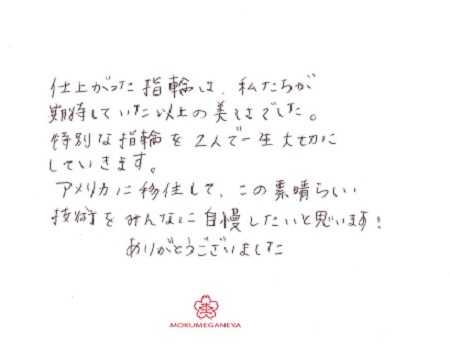 仕上がった指輪は、私たちが
期待していた以上の美しさでした。
特別な指輪を2人で一生大切に
していきます。
アメリカに移住して、この素晴らしい
技術をみんなに自慢したいと思います!
ありがとうございました
MOKUMEGANEYA